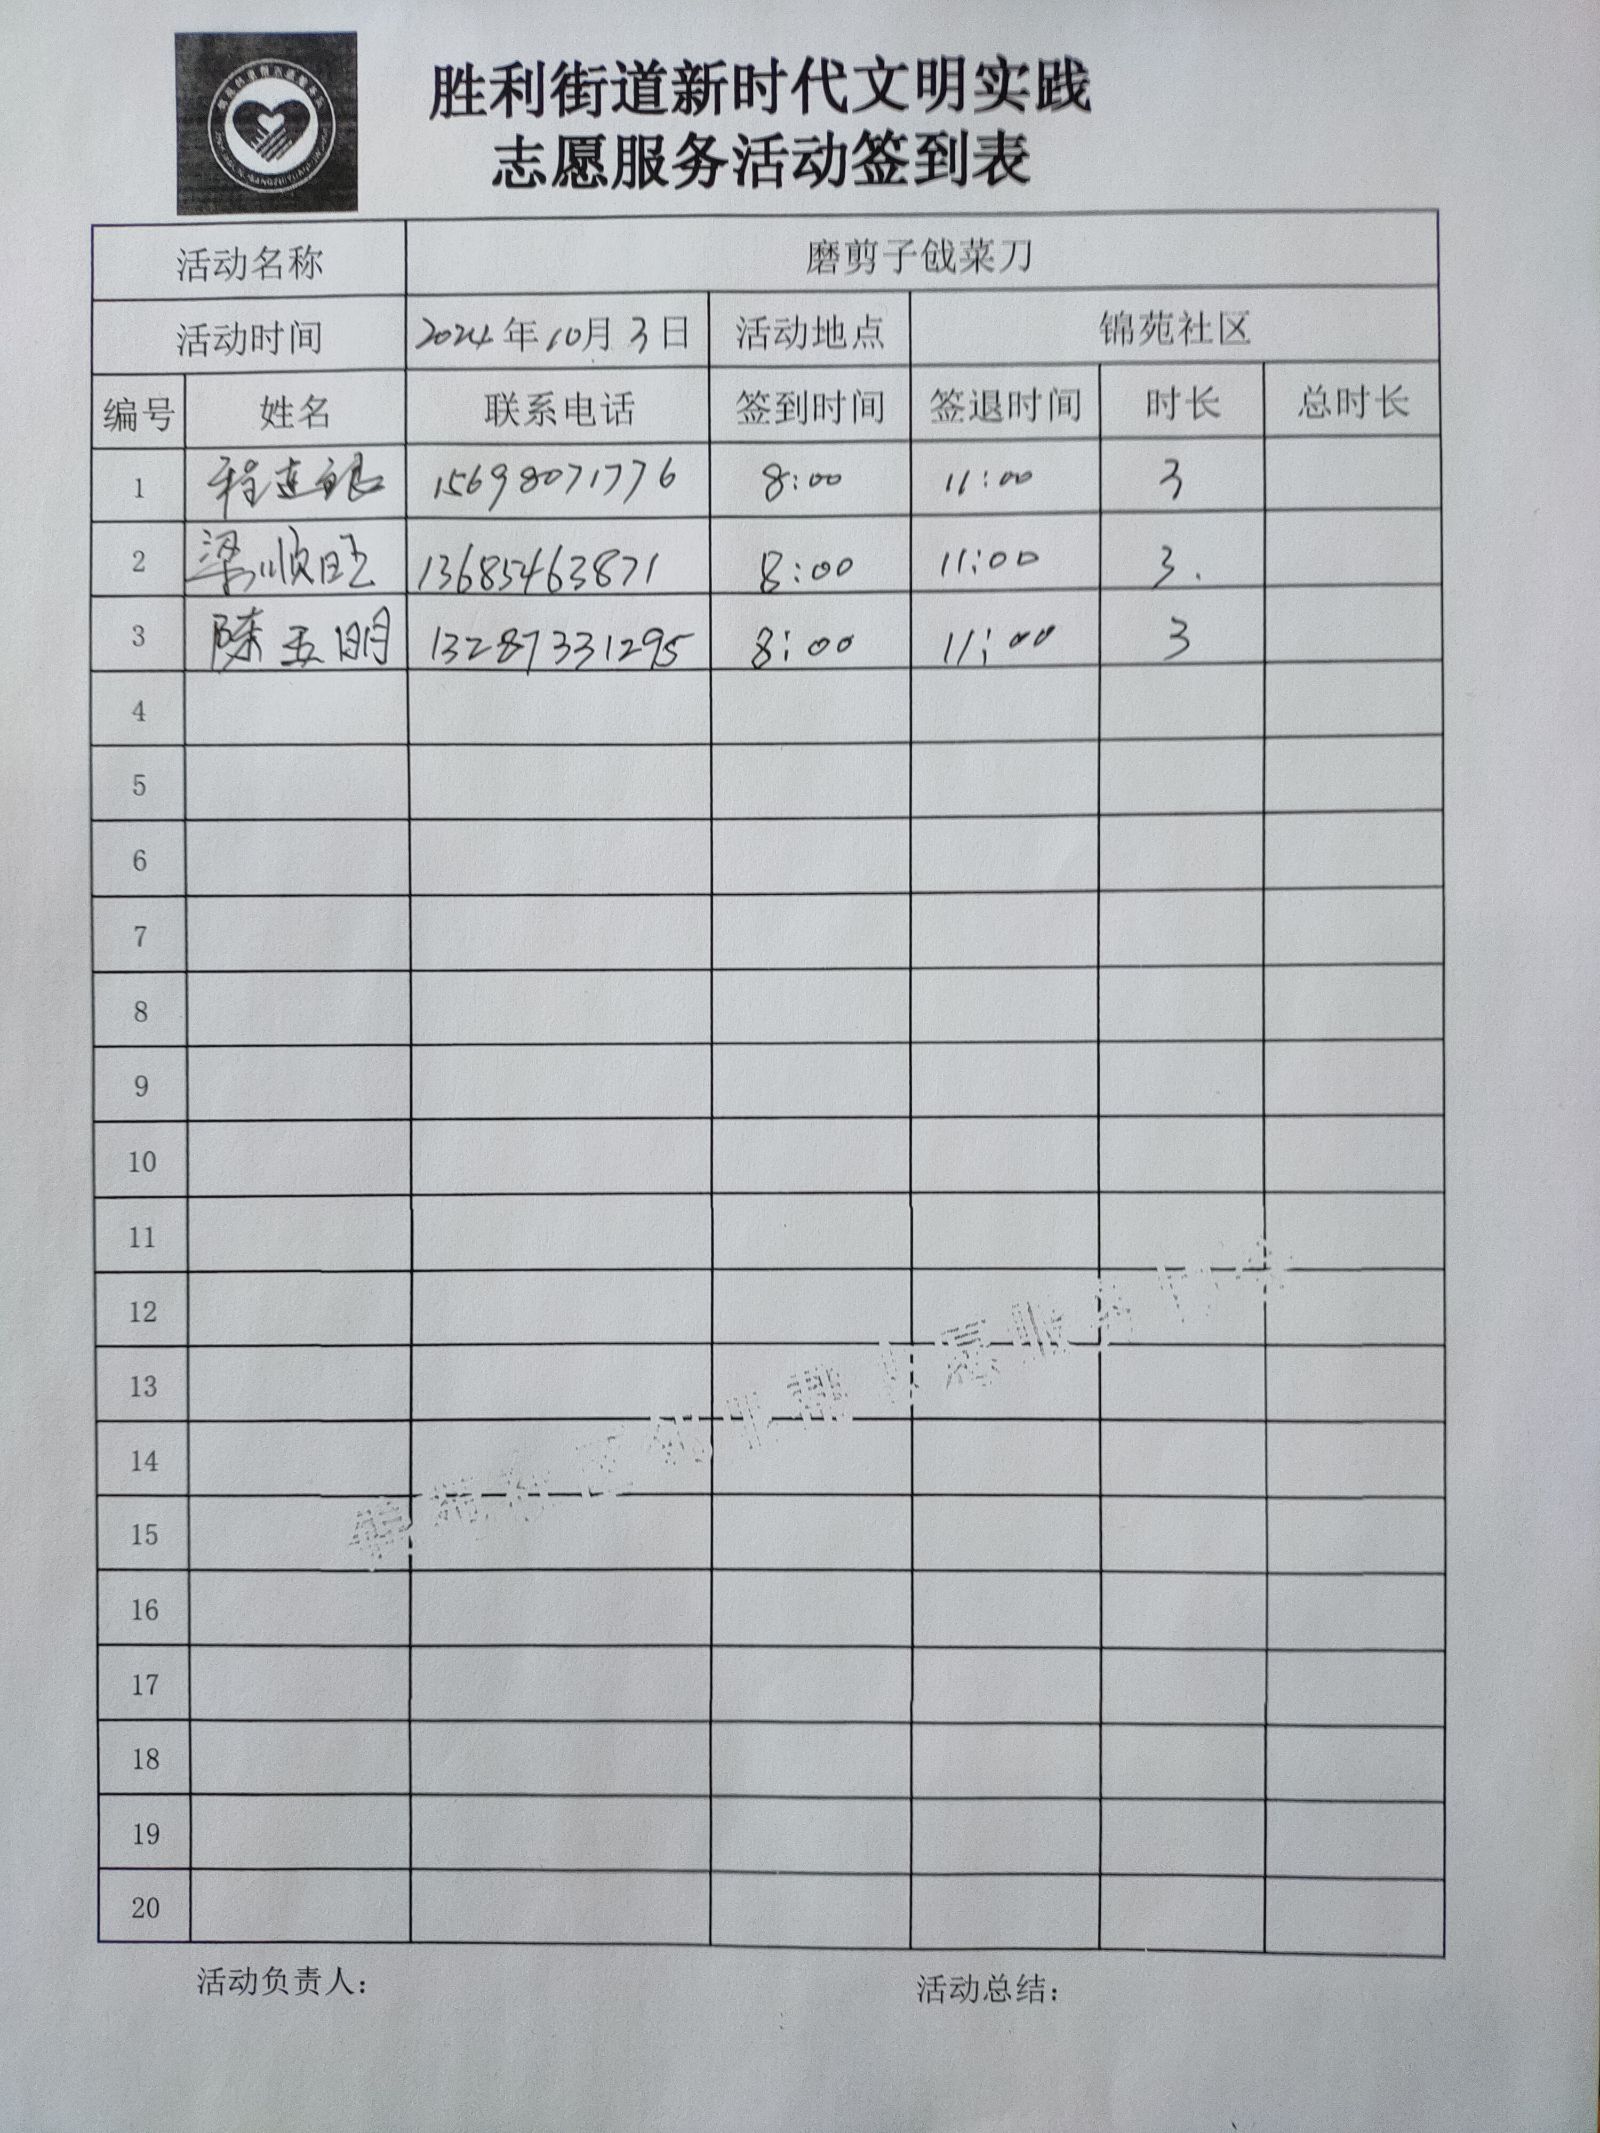 胜利街道新时代文明实践
志愿服务活动签到表
活动名称 磨剪子戗菜刀
活动时间 2024年10月3日 活动地点 锦苑社区
编号 姓名 联系电话 签到时间 签退时间 时长 总时长
1 程连银 15698071776 8:00 11:00 3
2 梁顺旺 13685463871 8:00 11:00 3.
3 陈玉明 13287331295 8:00 11:00 3
4
5
6
7
8
9
10
11
12
13
14
15
16
17
18
19
20
活动负责人： 活动总结：